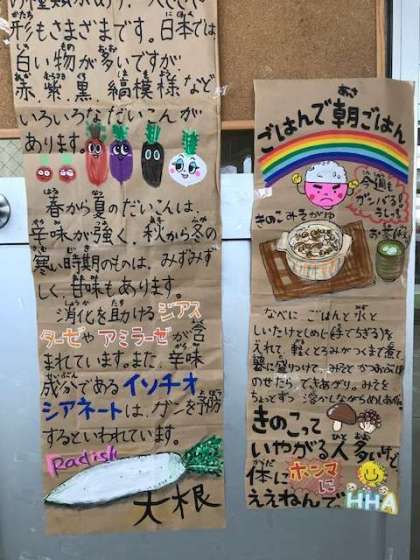 形もさまざまです。日本では
白い物が多いですが
赤、紫、黒、縞模様など
いろいろなだいこんが
あります。
春から夏のだいこんは、
辛味が強く、秋から冬の
寒い時期のものは、みずみず
しく、甘味もあります。
消化を助けるジアス
ターゼやアミラーゼが含
まれています。また、辛味
成分であるイソチオ
シアネートは、ガンを予防
するといわれています。
Radish
大根
ごはんで朝ごはん
今週も
ガンバろう
きのこみそがゆ
お茶
なべに ごはんと水と
しいたけとしめじ(手でちぎる)を
入れて、軽くとろみがつくまで煮て、
器に盛りつけて、みそと かつおぶしを
のせたら できあがり。みそを
ちょっとずつ 溶かしながらめしあがれ
きのこって
いやがる人多いけど、
体にホンマに
ええねんで HHA